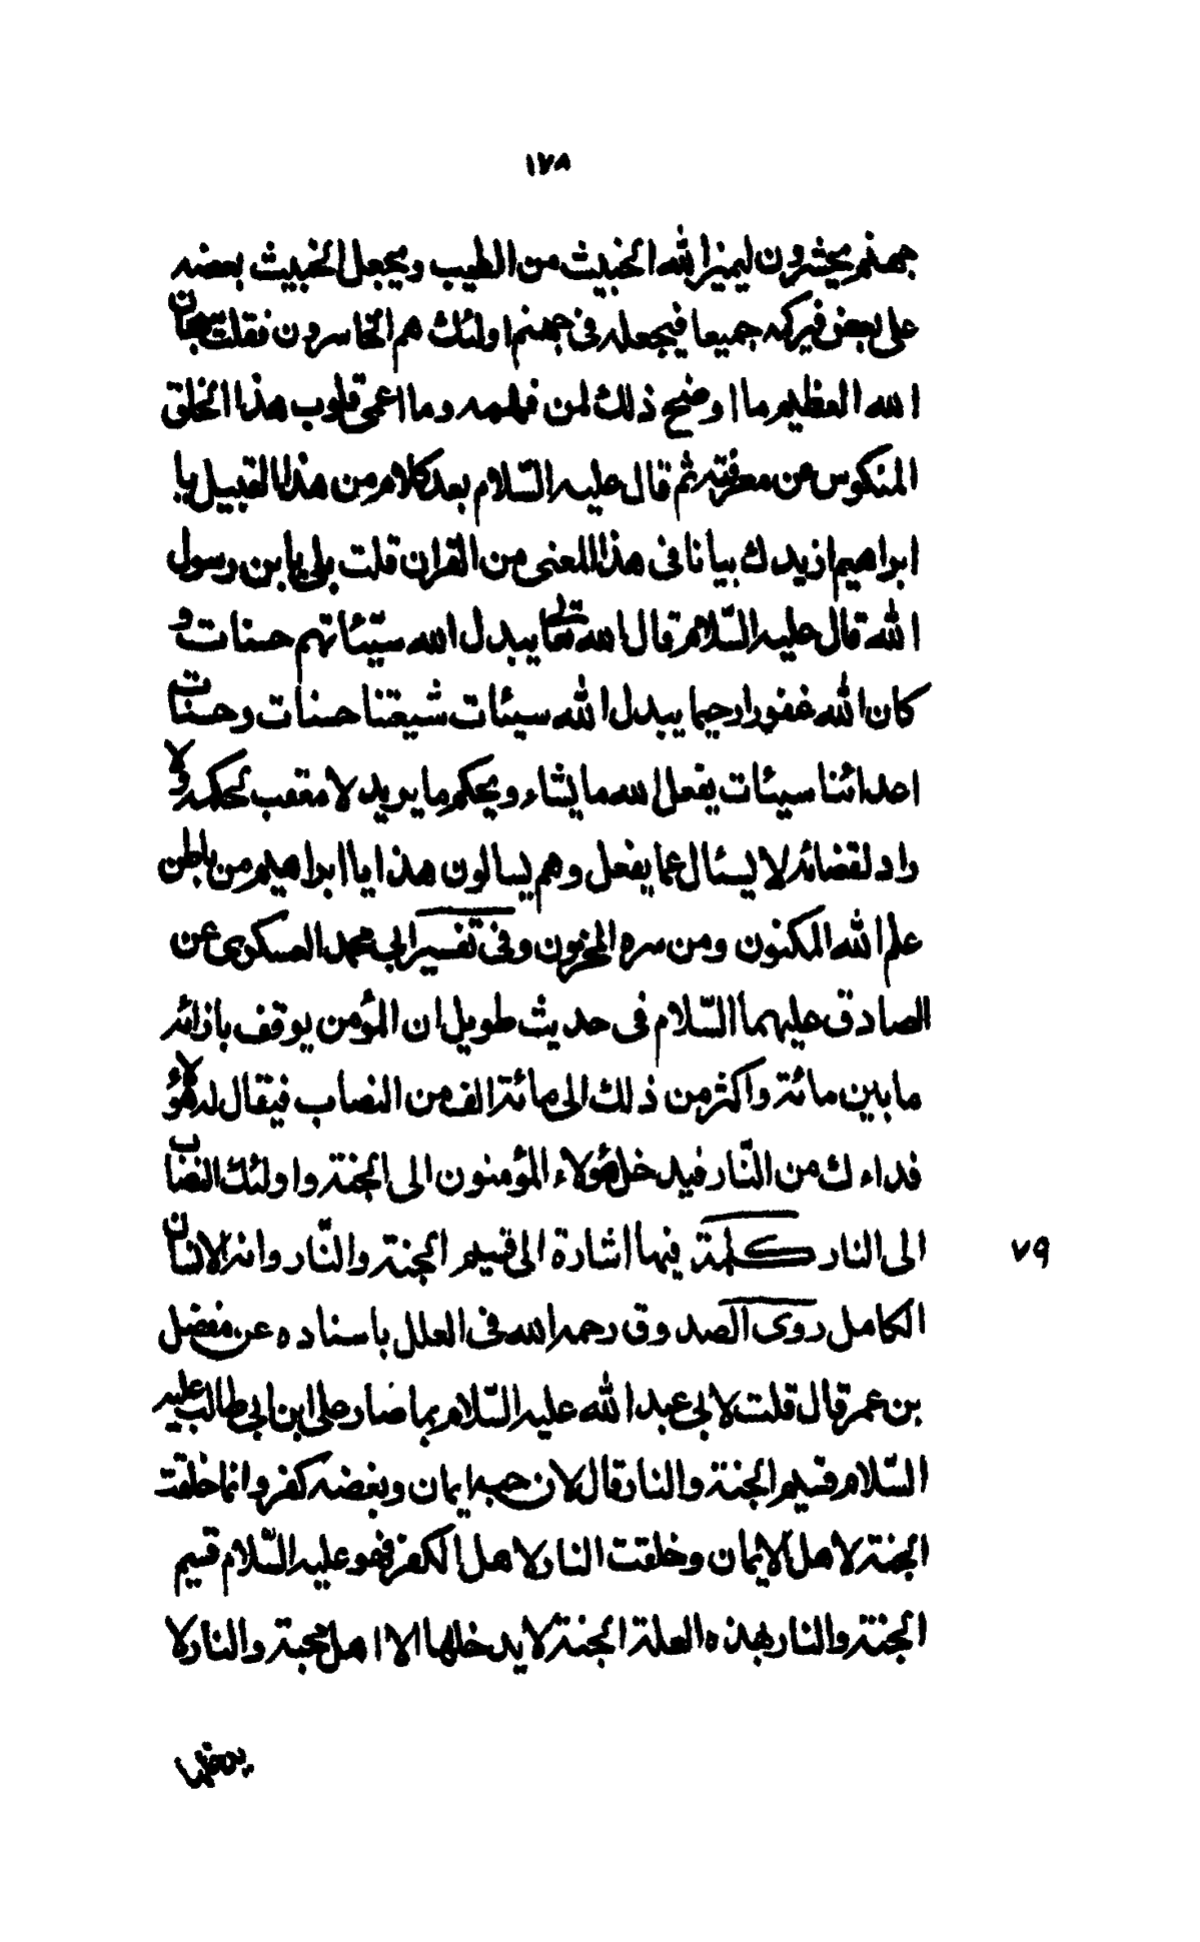 ١٧٨
جهنم يحشرون ليميز الله الخبيث من الطيب ويجعل الخبيث بعضه
على بعض فيركمه جميعا فيجعله فى جهنم اولئك هم الخاسرون فقلت سبحان
الله العظيم ما اوضح ذلك لمن فهمه وما اعمى قلوب هذا الخلق
المنكوس عن معرفته ثم قال عليه السّلام بعد كلام من هذا القبيل يا
ابراهيم ازيدك بيانا فى هذا المعنى من القران قلت بلى يا بن رسول
الله قال عليه السّلام قال الله تعالى يبدل الله سيّئاتهم حسنات و
كان الله غفورا رحيما يبدل الله سيئات شيعتنا حسنات وحسنات
اعدائنا سيئات يفعل الله ما يشاء ويحكم ما يريد لا معقب لحكمه ولا
راد لقضائه لا يسئال عما يفعل وهم يسالون هذا يا ابراهيم من باطن
علم الله المكنون ومن سره المخزون وفى تفسير ابى محمد العسكرى عن
الصادق عليهما السّلام فى حديث طويل ان المؤمن يوقف بازائه
ما بين مائة واكثر من ذلك الى مائة الف من النصاب فيقال له هؤلاء
فداءك من النّار فيدخل هؤلاء المؤمنون الى الجنة واولئك النصاب
الى النار كلمة فيها اشارة الى قسيم الجنة والنّار وانه الانسان
٧٩
الكامل روى الصدوق رحمه الله فى العلل باسناده عن مفضل
بن عمر قال قلت لابى عبد الله عليه السّلام بما صار على ابن ابى طالب عليه
السّلام قسيم الجنة والنار قال لان حبه ايمان وبغضه كفر وانما خلقت
الجنة لاهل الايمان وخلقت النار لاهل الكفر فهو عليه السّلام قسيم
الجنة والنار بهذه العلة الجنة لا يدخلها الا اهل محبة والنار لا
يدخلها